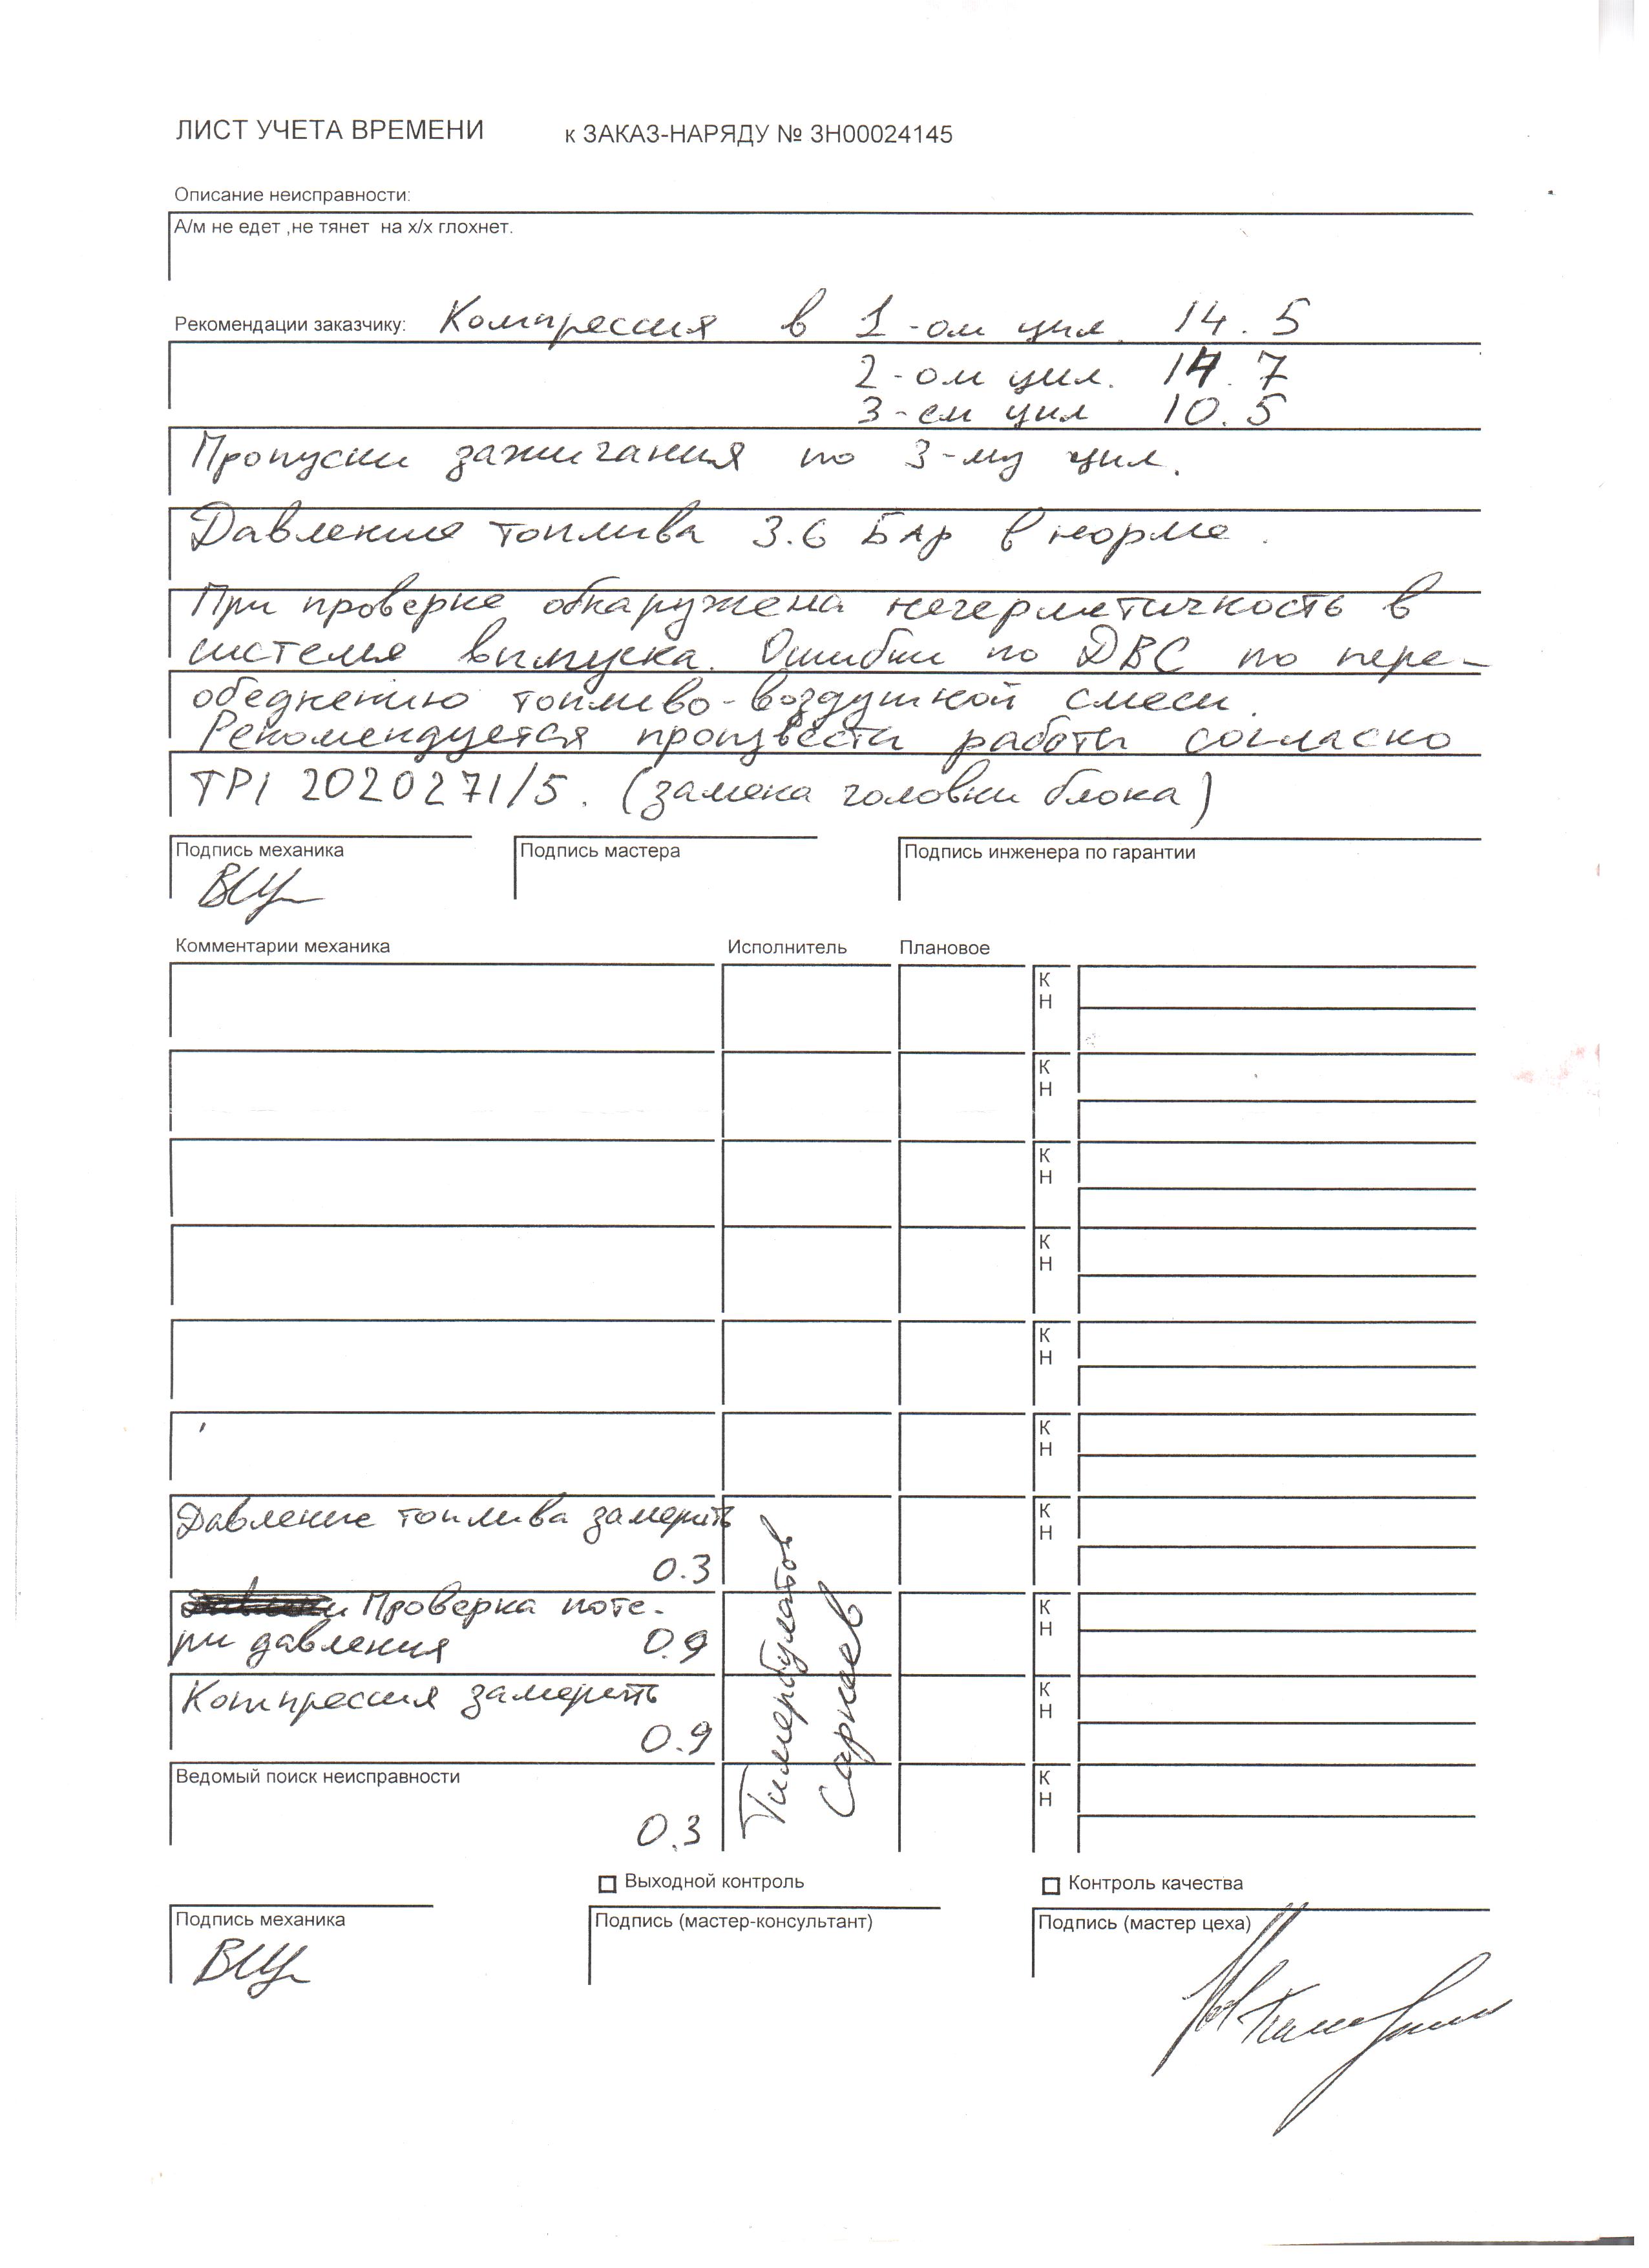 ЛИСТ УЧЕТА ВРЕМЕНИ к ЗАКАЗ-НАРЯДУ № ЗН00024145
Описание неисправности:
А/м не едет ,не тянет на х/х глохнет.
Рекомендации заказчику: Компрессия в 1-ом цил. 14.5
2-ом цил. 14.7
3-ем цил 10.5
Пропуски зажигания по 3-му цил.
Давление топлива 3.6 Бар в норме.
При проверке обнаружена негерметичность в
системе выпуска. Ошибки по ДВС по пере-
обеднению топливо-воздушной смеси.
Рекомендуется произвести работы согласно
TPI 2020271/5. (замена головки блока)
Подпись механика Подпись мастера Подпись инженера по гарантии
Комментарии механика Исполнитель Плановое
К
Н
К
Н
К
Н
К
Н
К
Н
К
Н
Давление топлива замерить К
Н
0.3
Проверка поте- К
ри давления 0.9 Н
Компрессия замерить К
Н
0.9
Тимербулатов
Сариев
Ведомый поиск неисправности К
Н
0.3
Выходной контроль Контроль качества
Подпись механика Подпись (мастер-консультант) Подпись (мастер цеха)